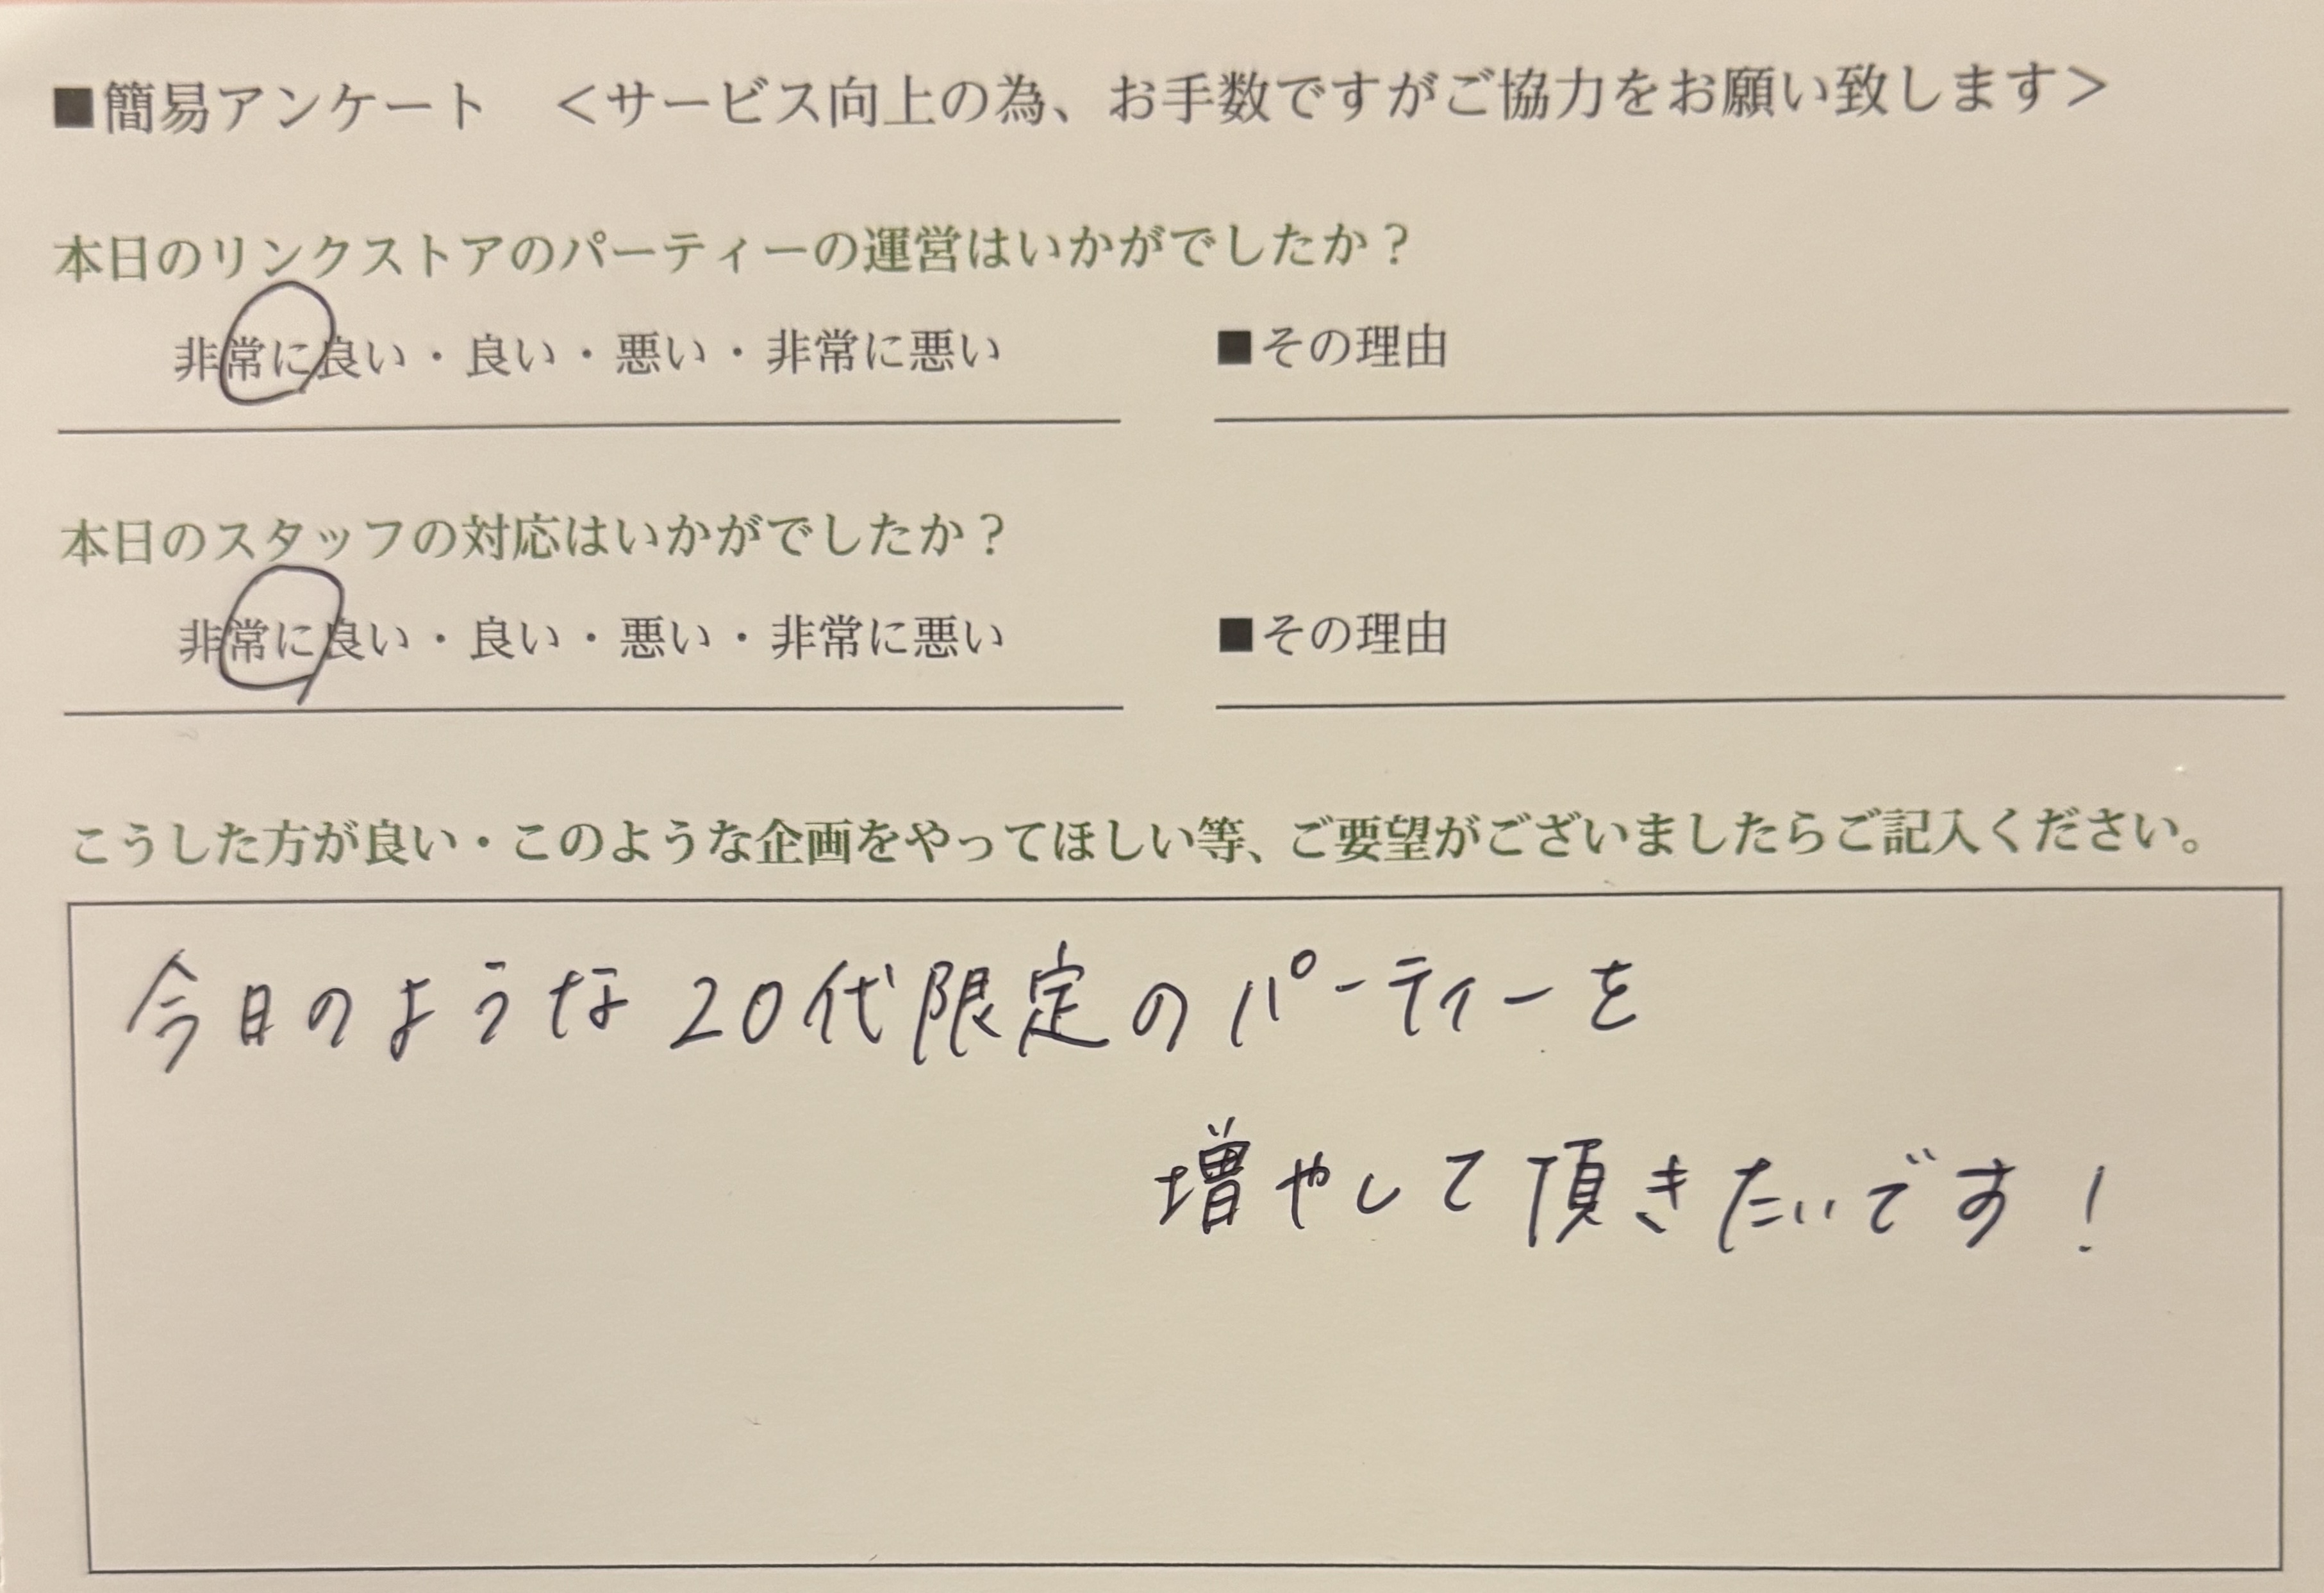 ■簡易アンケート　＜サービス向上の為、お手数ですがご協力をお願い致します＞
本日のリンクストアのパーティーの運営はいかがでしたか？
非常に良い・良い・悪い・非常に悪い　■その理由
本日のスタッフの対応はいかがでしたか？
非常に良い・良い・悪い・非常に悪い　■その理由
こうした方が良い・このような企画をやってほしい等、ご要望がございましたらご記入ください。
今日のような20代限定のパーティーを
増やして頂きたいです！